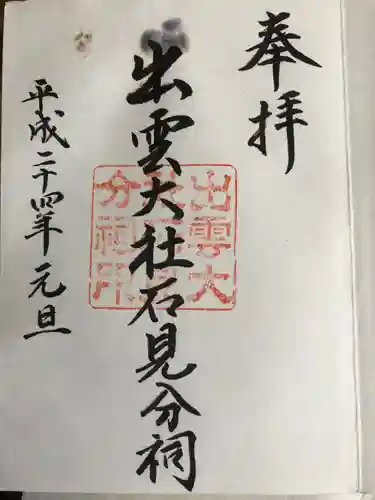 奉拝
出雲大社石見分祠
平成二十四年元旦
出雲大
社石見
分祠之印